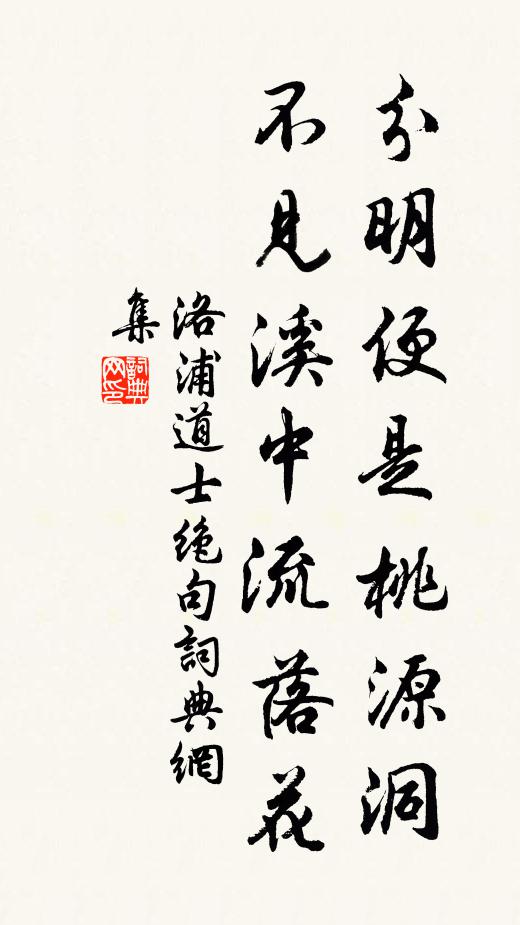 分明便是桃源洞
不見溪中流落花
洛浦道士绝句詞典網
集
詞典
网印